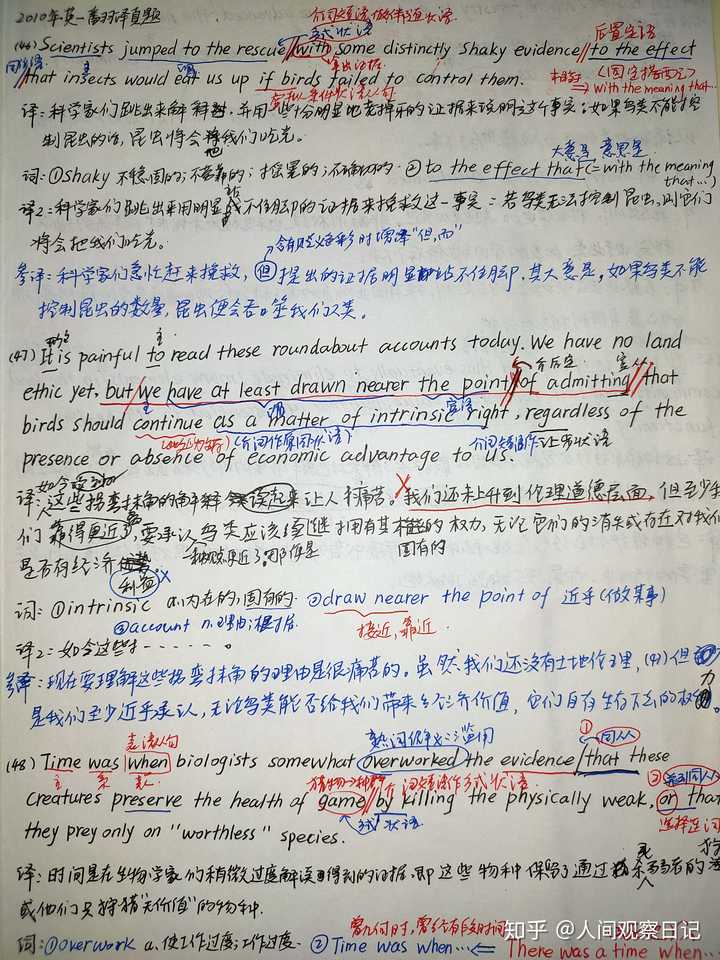 2010年英一翻译真题
介词短语做伴随状语
方式状语
后置定语
(46) Scientists jumped to the rescue with some distinctly shaky evidence to the effect
同位语
主
谓
拿出证据
相当于
(固定搭配)
that insects would eat us up if birds failed to control them.
with the meaning that...
译:科学家们跳出来解释,并用一些份明显地
来说明这个事实:如果鸟类不能控
制昆虫的话,昆虫将会把我们吃光。
大意是 意思是
词:①shaky 不稳固的;不可靠的;摇晃的;不确切的 ②to the effect that (=with the meaning
that...)
译2:科学家们跳出来用明显站不住脚的证据来挽救这一事实:若鸟类无法控制昆虫,则它们
将会把我们吃光。
含有贬义色彩时增译"但,而"
参译:科学家们急忙赶来挽救,但提出的证据明显站不住脚,其大意是,如果鸟类不能
控制昆虫的数量,昆虫便会吞噬我们人类。
(47) It is painful to read these roundabout accounts today. We have no land
主
介后定
宾从
ethic yet, but we have at least drawn nearer the point of admitting that
主
谓
宾语
birds should continue as a matter of intrinsic right, regardless of the
(介词作原因状语)
介词短语作让步状语
presence or absence of economic advantage to us.
如今
译:这些拐弯抹角的解释读起来让人痛苦。我们还未上升到伦理道德层面,但至少我
们靠得更近了,要承认鸟类应该继续拥有其
的权力,无论它们的消失或存在对我们
固有的
是否有经济
利益
词:①intrinsic a.内在的;固有的 ②draw nearer the point of 近乎(做某事)
③account n.理由;根据
接近,靠近
译2:如今这些
参译:现在要理解这些拐弯抹角的理由是很痛苦的。虽然我们还没有土地伦理,(47)但
是我们至少近乎承认,无论鸟类能否给我们带来经济价值,它们自有生存下去的权力。
表语从句
熟词僻义:滥用
① 同从
(48) Time was when biologists somewhat overworked the evidence that these
主 系 表
猎物→种群
介词短语作方式状语
② 同从
creatures preserve the health of game by killing the physically weak, or that
方式状语
选择连词
they prey only on "worthless" species.
译:时间是在生物学家们稍微过度解读得到的证据,即这些物种保留了通过杀死
弱者的
或他们只狩猎"无价值"的物种.
曾几何时,曾经有段时间
词:①overwork a.使工作过度;工作过度 ②Time was when... ⇐ There was a time when...
知乎 @人间观察日记